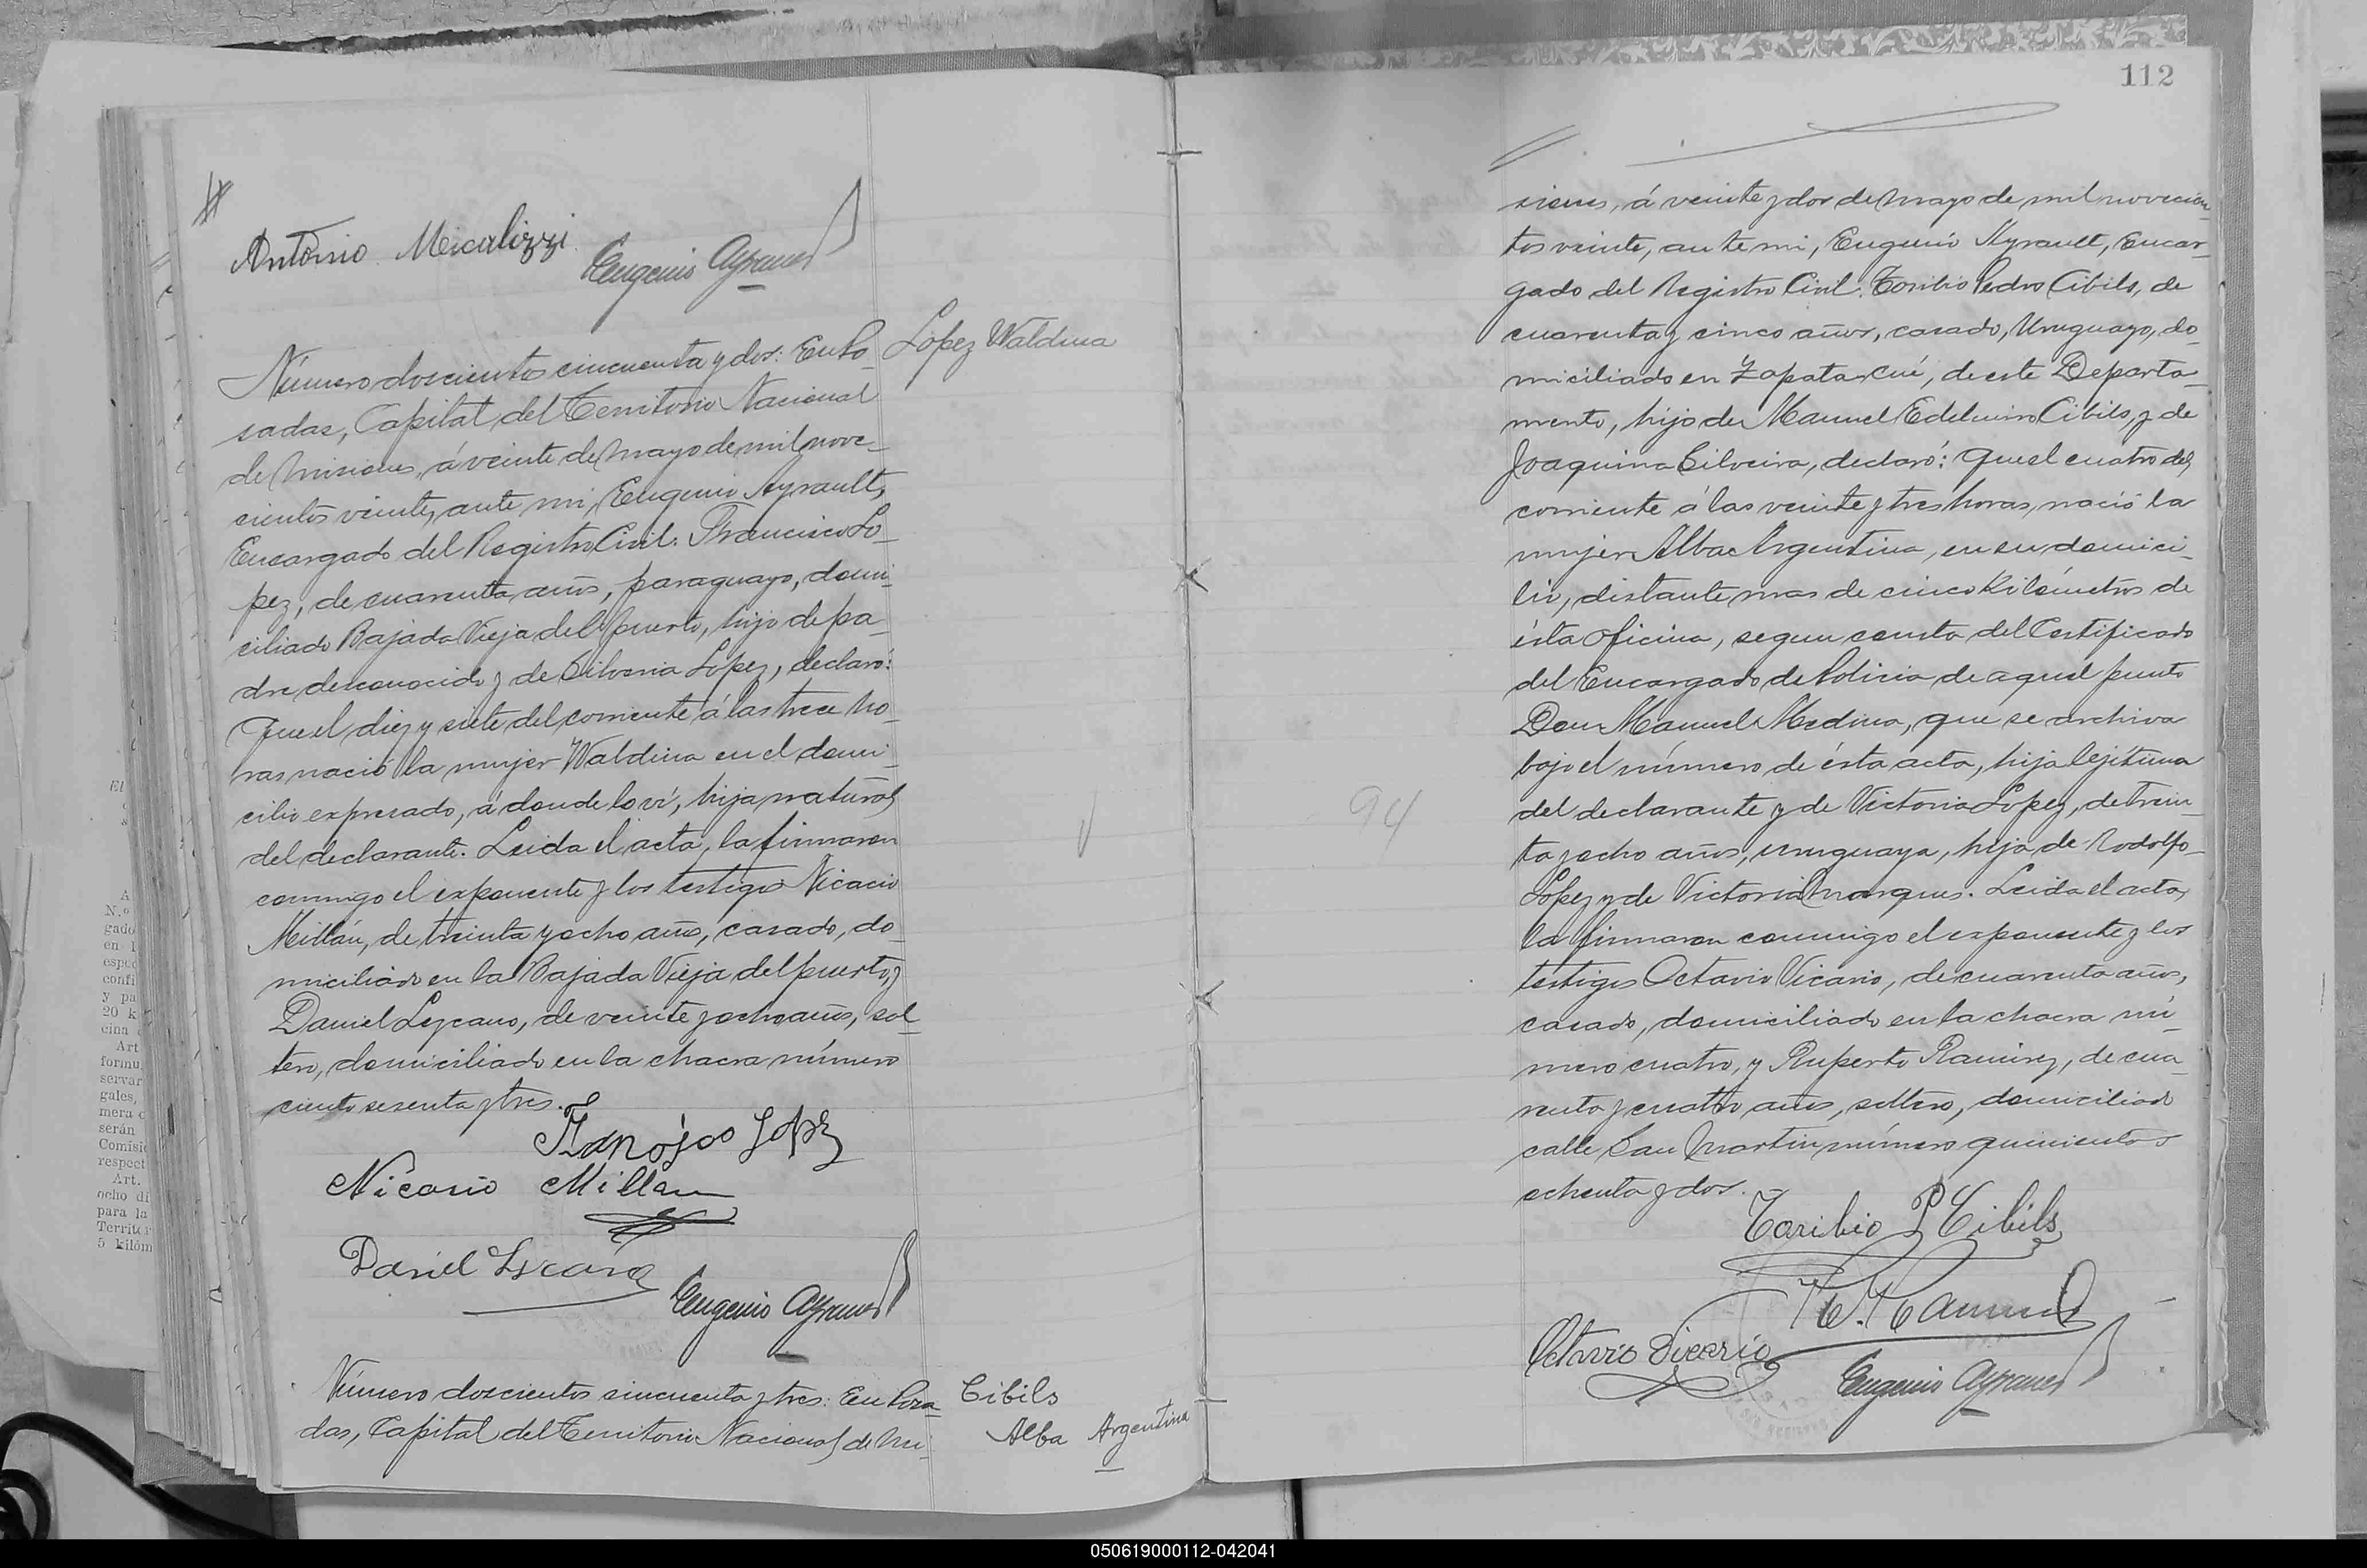 Antonio Micalizzi
Eugenio Ayrault
Número doscientos cincuenta y dos: En Po-
Lopez Waldina
sadas, Capital del Territorio Nacional
de Misiones, á veinte de Mayo de mil nove-
cientos veinte, ante mi, Eugenio Ayrault,
Encargado del Registro Civil. Francisco Lo-
pez, de cuarenta años, paraguayo, domi-
ciliado Bajada Vieja del puerto, hijo de pa-
dre desconocido y de Silveria López, declaró:
Que el diez y siete del corriente á las trece ho-
ras nació la mujer Waldina en el domi-
cilio expresado, á donde lo ví, hija natural
del declarante. Leida el acta, la firmaron
conmigo el exponente y los testigos Nicacio
Millán, de treinta y ocho años, casado, do-
miciliado en la Bajada Vieja del puerto, y
Daniel Lezcano, de veinte y ocho años, sol-
tero, domiciliado en la chacra número
ciento sesenta y tres.
Nicacio Millan
Daniel Lezcano
Eugenio Ayrault
Número doscientos cincuenta y tres: En Posa-
Cibils
das, Capital del Territorio Nacional de Mi-
Alba Argentina
112
siones, á veinte y dos de Mayo de mil novecien-
tos veinte, ante mi, Eugenio Ayrault, Encar-
gado del Registro Civil. Toribio Pedro Cibils, de
cuarenta y cinco años, casado, Uruguayo, do-
miciliado en Zapata-cué, de este Departa-
mento, hijo de Manuel Edelmiro Cibils, y de
Joaquina Silveira, declaró: Que el cuatro del
corriente á las veinte y tres horas, nació la
mujer Alba Argentina, en su domici-
lio, distante mas de cinco Kilómetros de
ésta oficina, segun consta del Certificado
del Encargado de Policia de aquél punto
Don Manuel Medina, que se archiva
bajo el número de ésta acta, hija lejítima
del declarante y de Victoria Lopez, de trein-
94
ta y ocho años, uruguaya, hija de Rodolfo
Lopez y de Victoria Marques. Leida el acta,
la firmaron conmigo el exponente y los
testigos Octavio Vicario, de cuarenta años,
casado, domiciliado en la chacra nú-
mero cuatro, y Ruperto Ramirez, de cua-
renta y cuatro años, soltero, domiciliado
calle San Martin número quinientos
ochenta y dos.
Toribio P Cibils
R. Ramirez
Octavio Vicario
Eugenio Ayrault
050619000112-042041